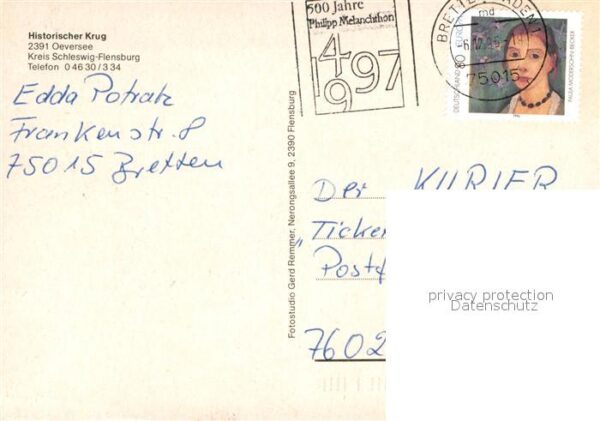 Historischer Krug
2391 Oeversee
Kreis Schleswig-Flensburg
Telefon 0 46 30 / 3 34
Edda Potratz
Frankenstr. 8
75015 Bretten
Fotostudio Gerd Remmer, Nerongsallee 9, 2390 Flensburg
500 Jahre
Philipp Melanchthon
1497
1997
BRETTEN
75015
DEUTSCHLAND
80
EUROPA
PAULA MODERSOHN-BECKER
Der KURIER
"Ticker
Postf
7602
privacy protection
Datenschutz